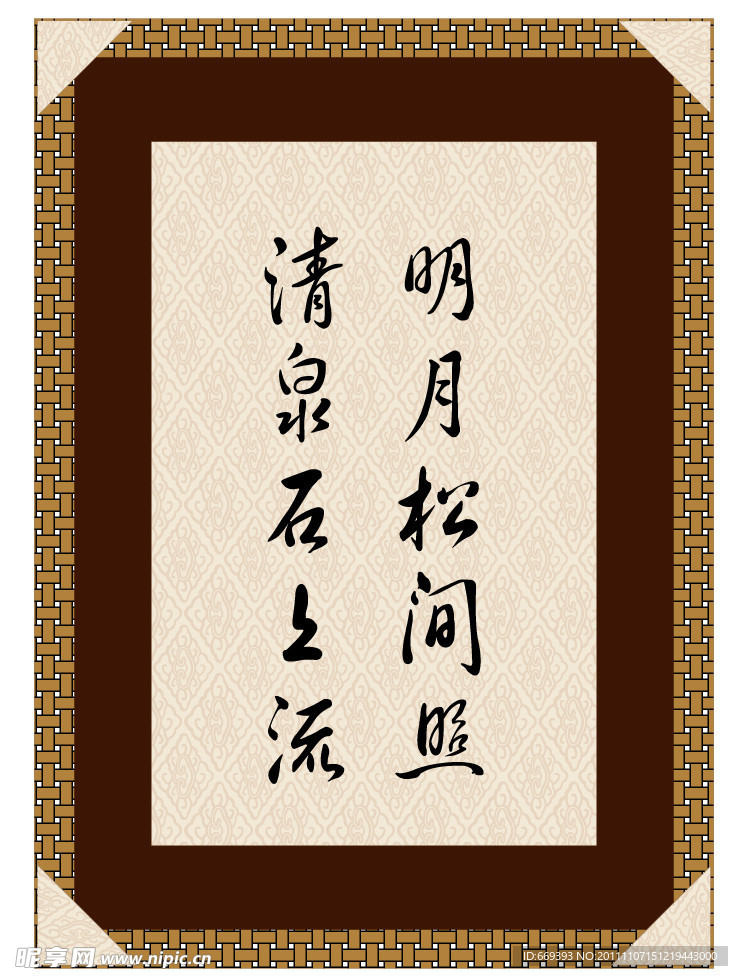 明月松间照
清泉石上流
昵享网 www.nipic.cn
ID:669393 NO:20111107151219443000